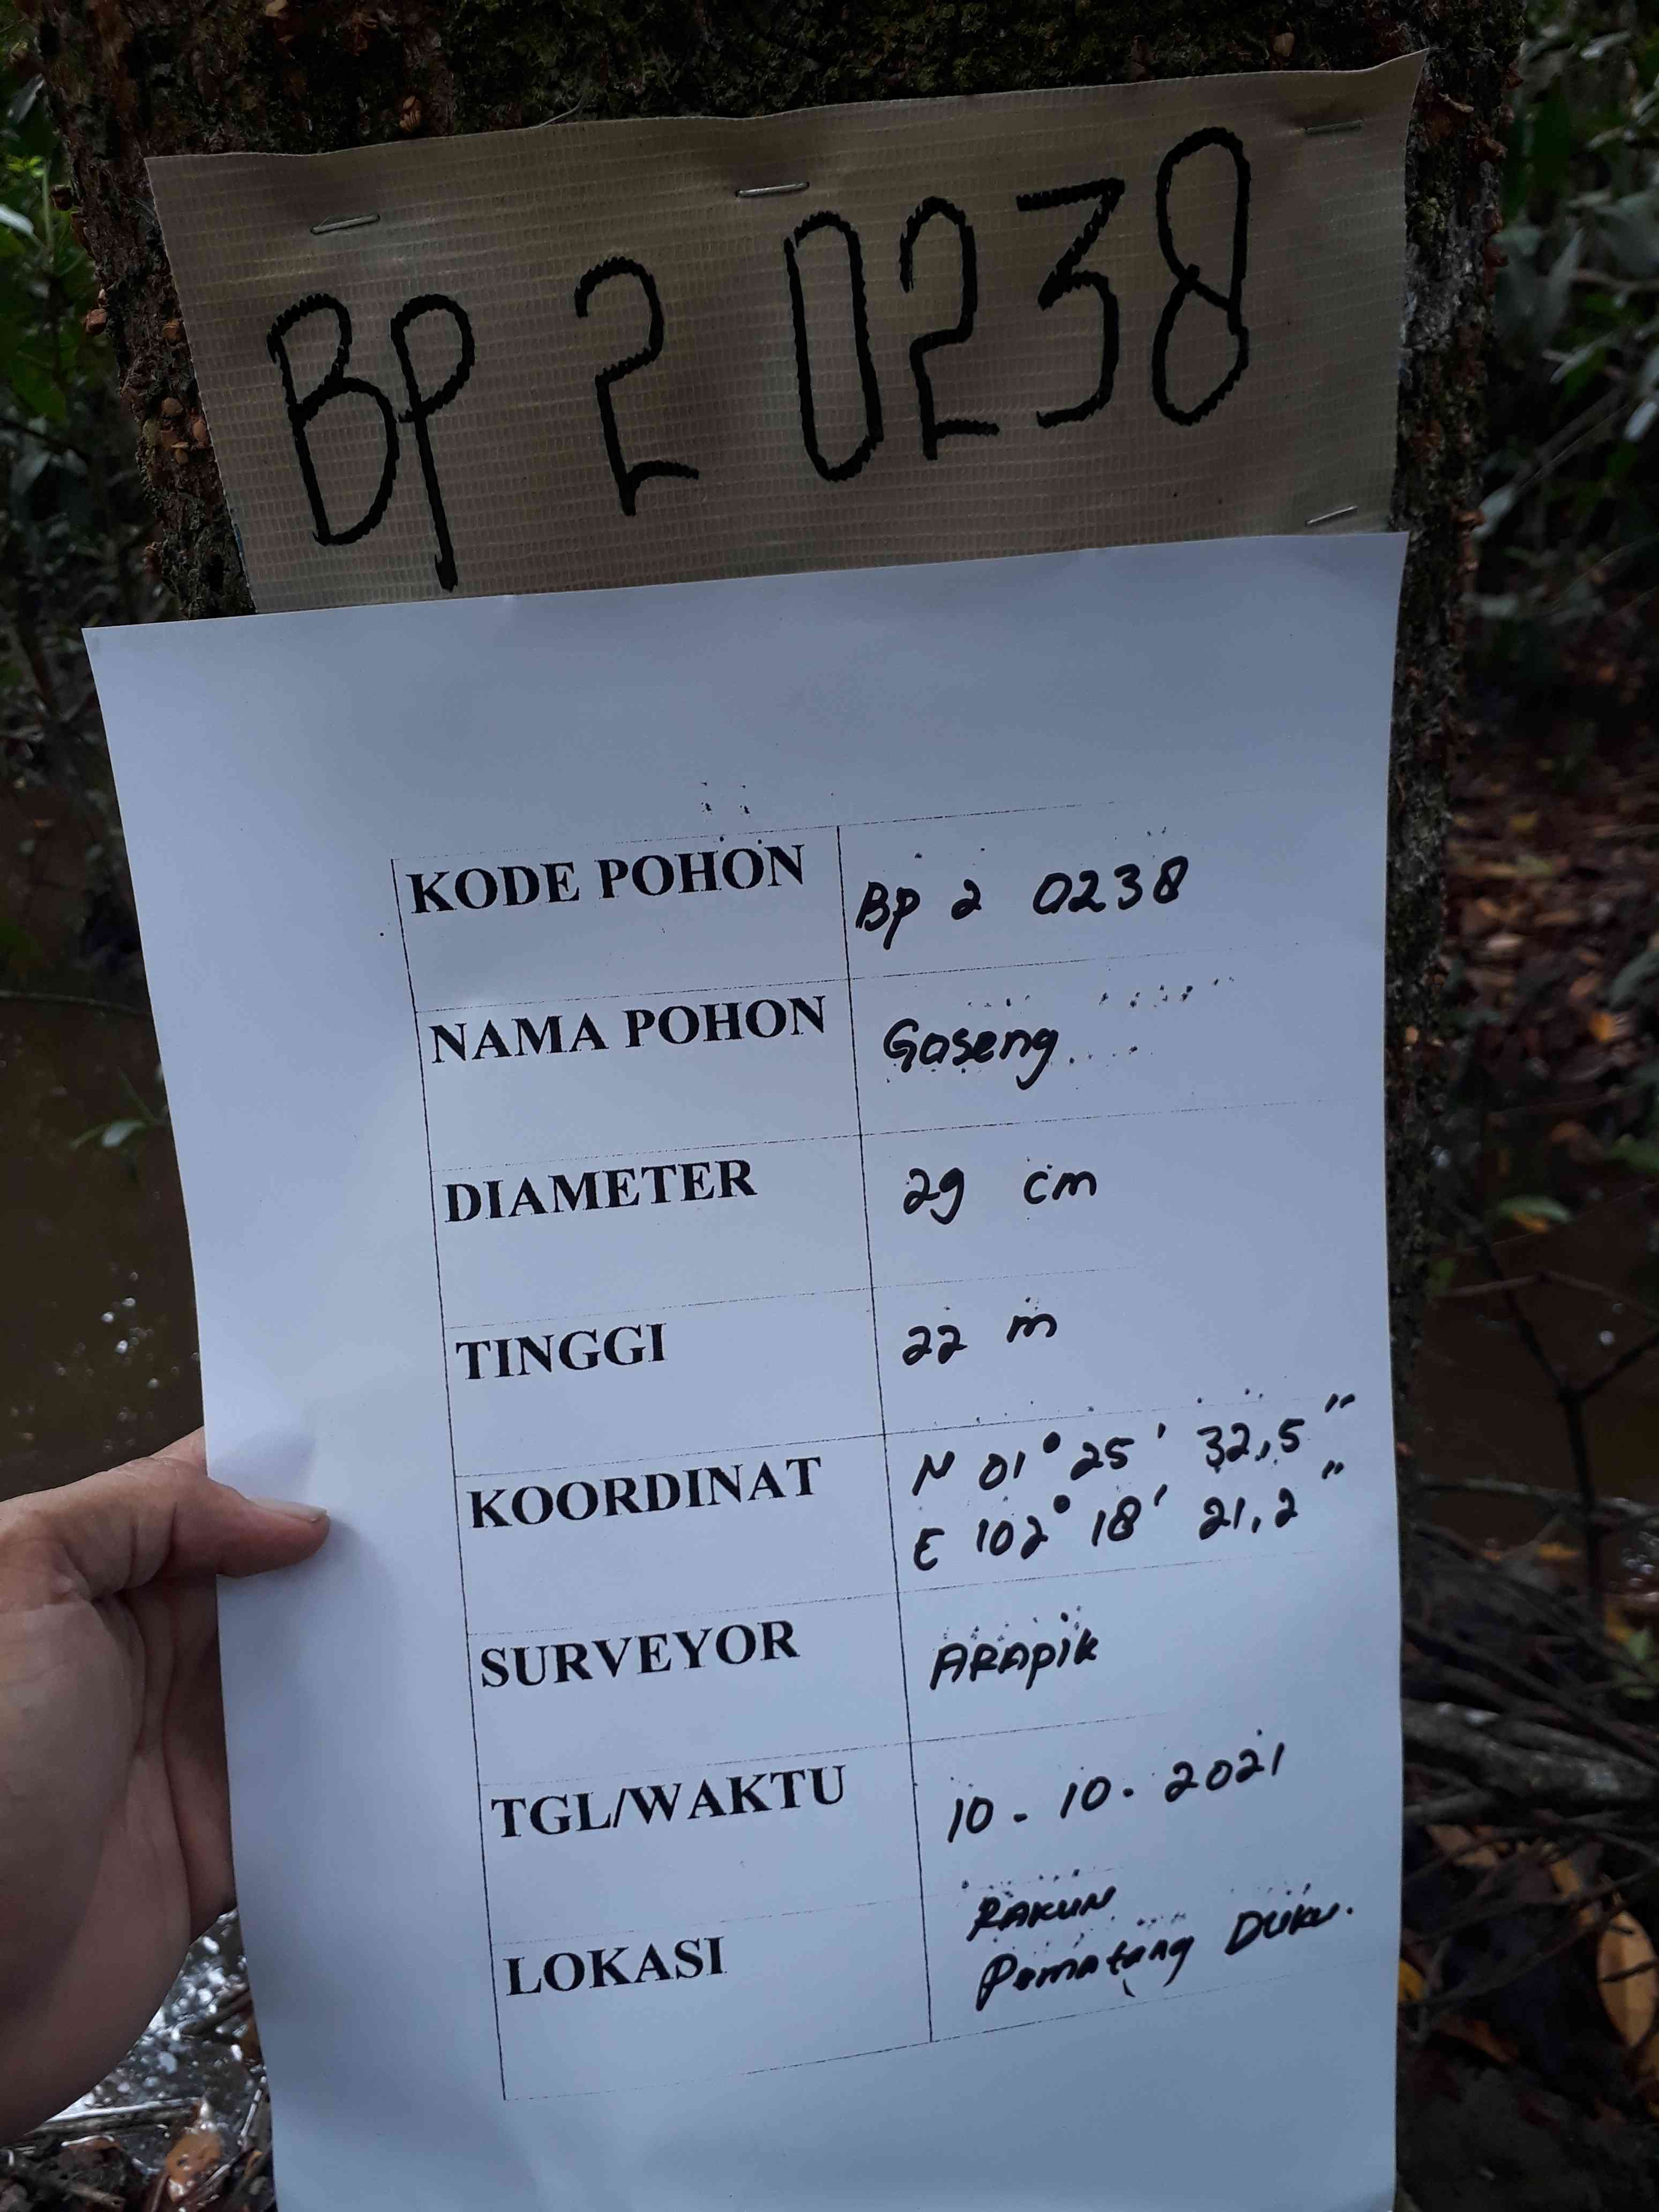 BP 2 0238
KODE POHON BP 2 0238
NAMA POHON Gaseng
DIAMETER 29 cm
TINGGI 22 m
KOORDINAT N 01° 25' 32,5"
E 102° 18' 21,2"
SURVEYOR ARApik
TGL/WAKTU 10 - 10 - 2021
LOKASI RAKUN
Pematang Duku.